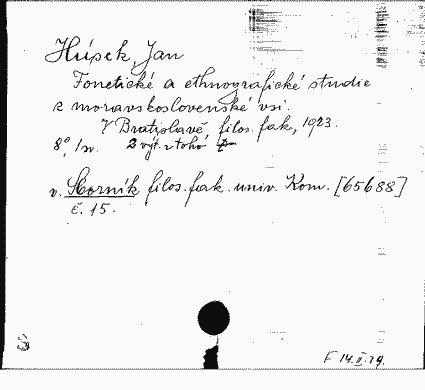 Húsek, Jan
Fonetické a ethnografické studie
z moravskoslovenské vsi.
V Bratislavě, filos. fak., 1923.
8°, 1 sv. 2 výt. z toho
v. Sborník filos. fak. univ. Kom. [65688]
č. 15.
F 14.II.29.